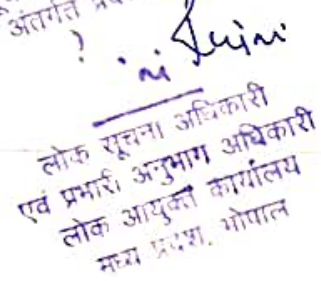 अंतर्गत
?
लोक सूचना अधिकारी
एवं प्रभारी अनुभाग अधिकारी
लोक आयुक्त कार्यालय
मध्य प्रदेश, भोपाल